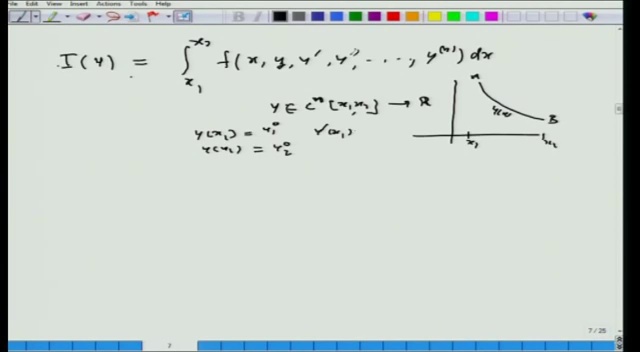 File View Insert Actions Tools Help
I(y) = ∫_{x₁}^{x₂} f(x, y, y', y'', ....., y^{(n)}) dx
y ∈ Cⁿ[x₁,x₂] → ℝ
y(x₁) = y₁⁰ y'(x₁)
y(x₂) = y₂⁰
A
y(x)
B
x₁
x₂
7 / 25
7